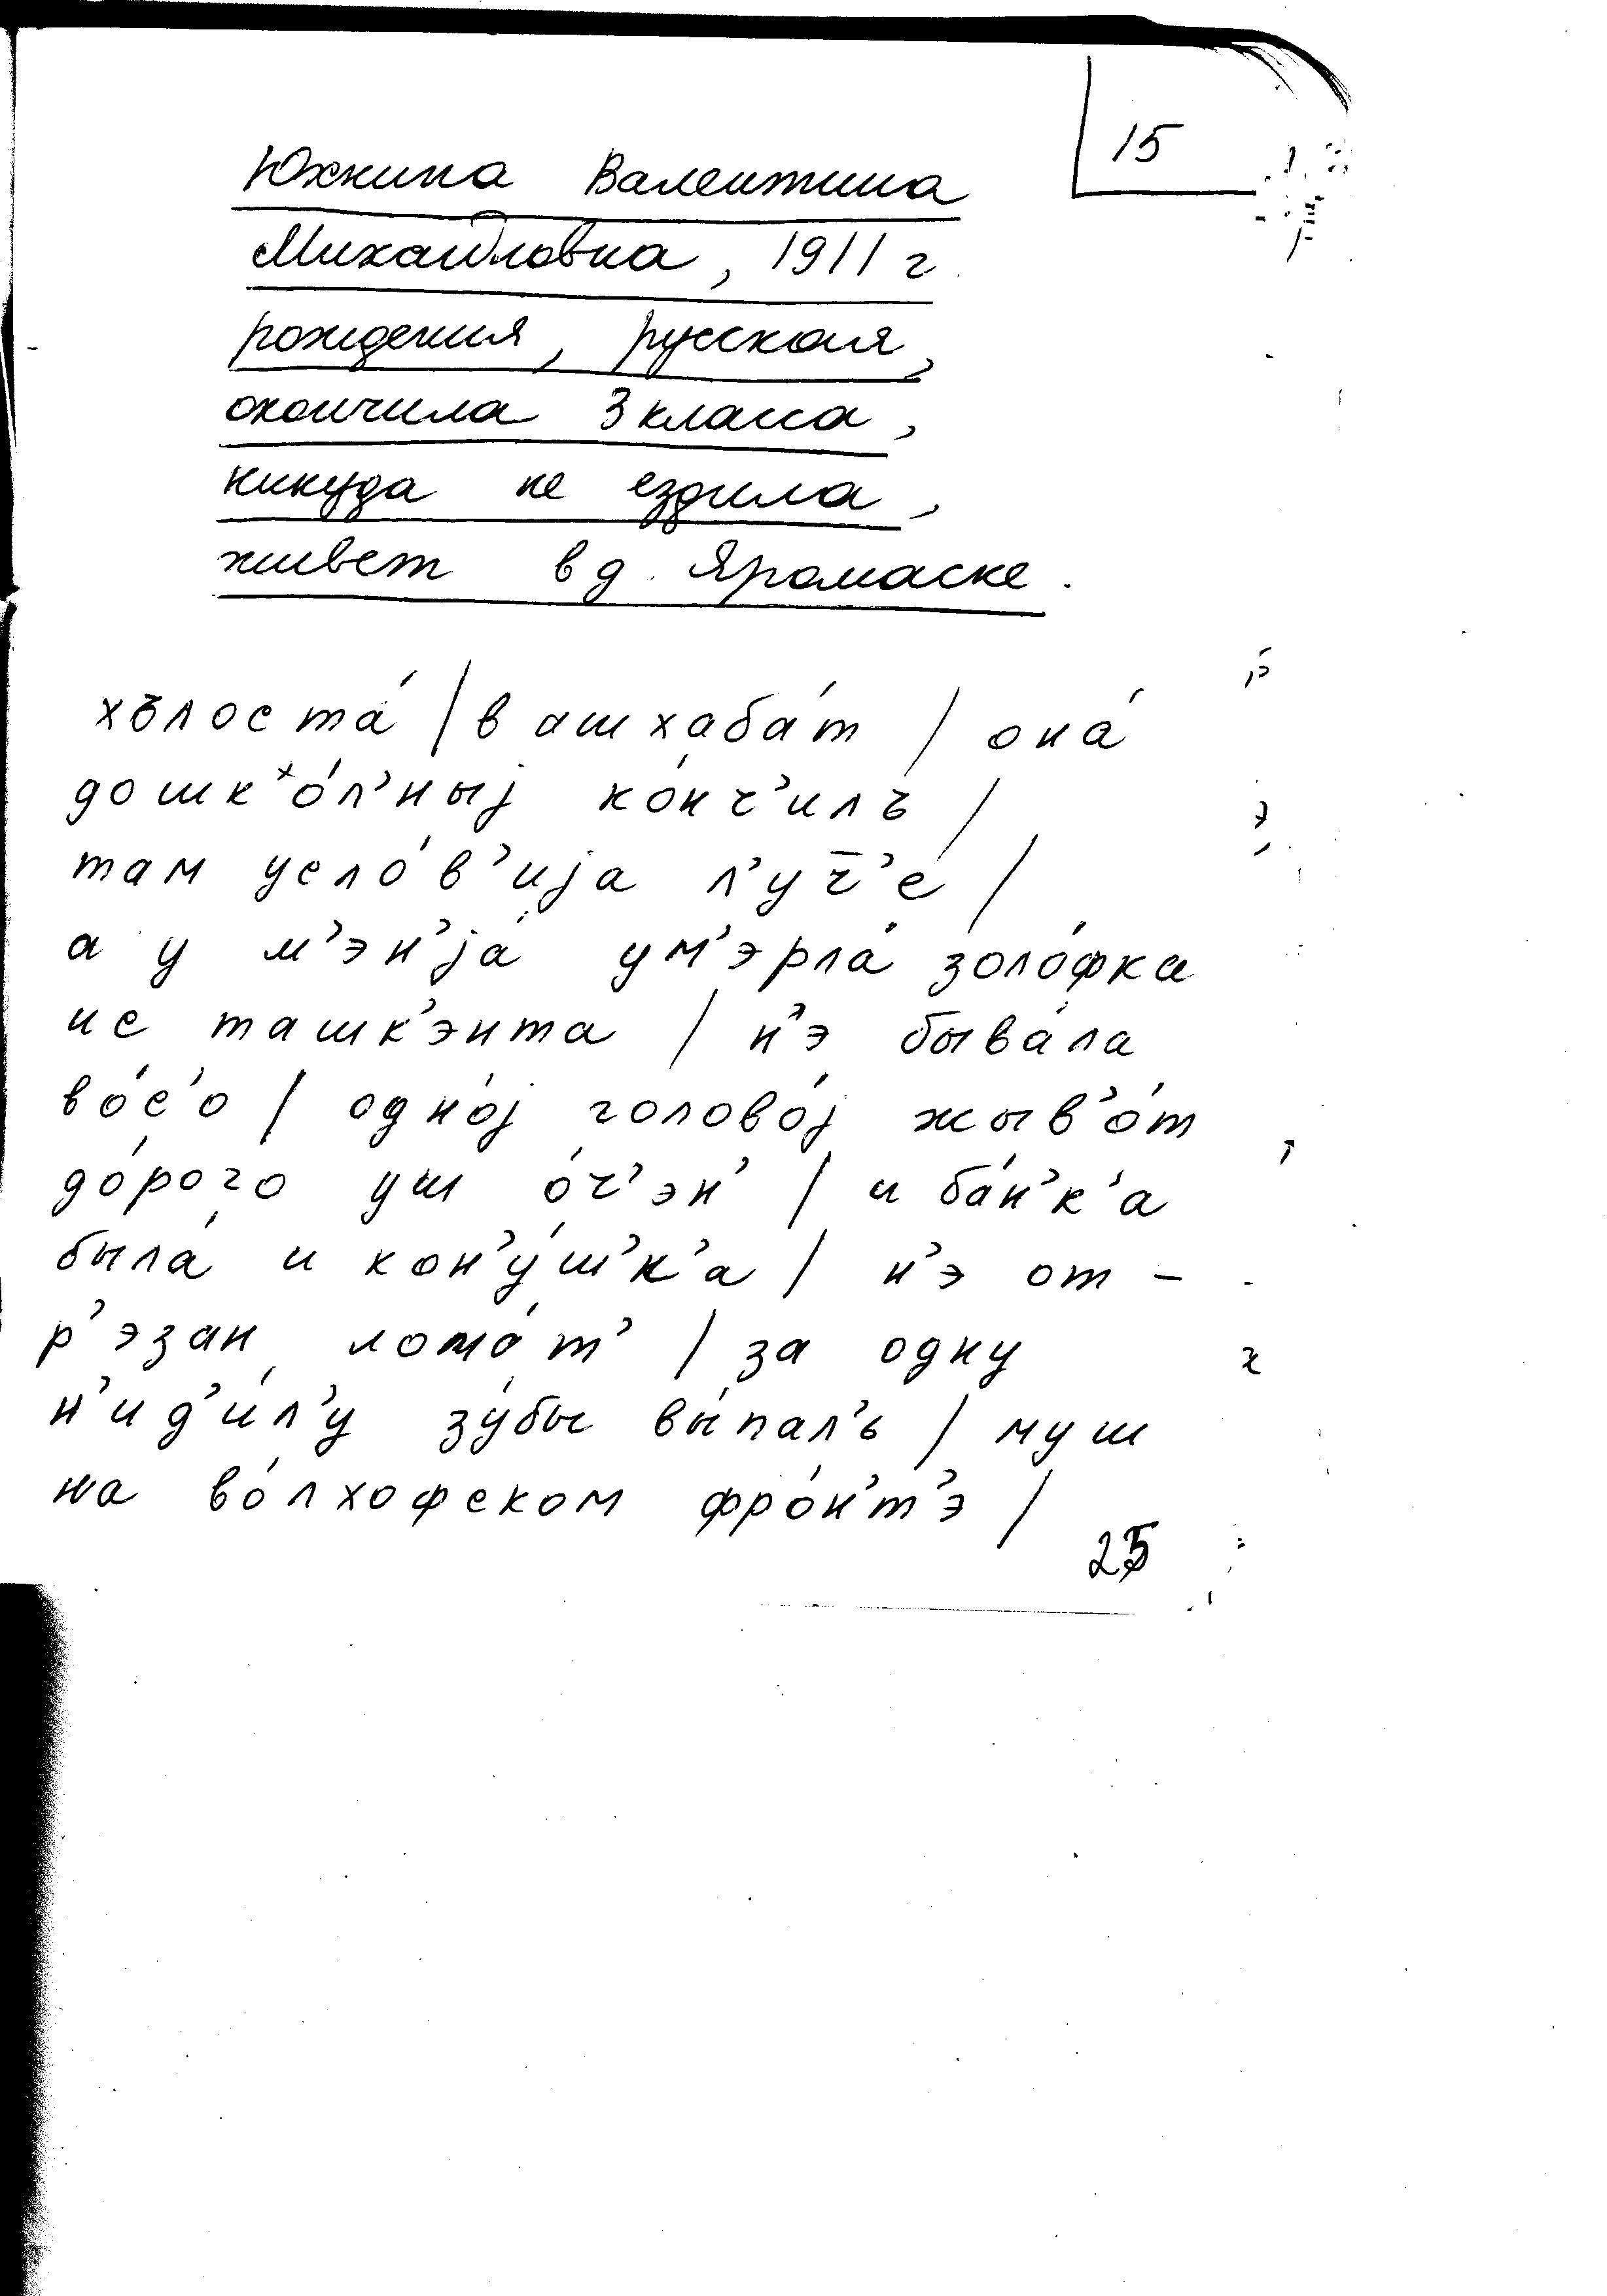 15
Южнина Валентина
Михайловна, 1911 г.
рождения, русская,
окончила 3 класса,
никуда не ездила,
живет в д. Яромаске.
хъ̆лоста́ / в ашхаба́т / она́
дошкˣо́л’ныj ко́нч’илъ /
там усло́в’иjа л’уч̄’е /
а у м’эн’jа́ ум’эрла́ золо́фка
ис ташк’э́нта / н’э быва́ла
во́с’о / одно́j голово́j жыв’о́т
до́рого уш о́ч’эн’ / и ба́н’к’а
была́ и кон’у́ш’к’а / н’э от –
р’эзан ломо́т’ / за одну
н’ид’и́л’у зу́бы вы́пал’ь / муш
на во́лхофском фро́н’т’э /
25